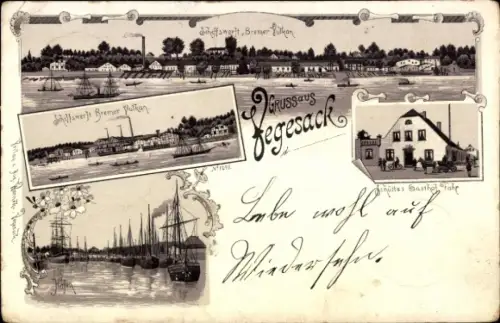 Schiffswerft, Bremer Vulkan.
Schiffswerft Bremer Vulkan.
Gruss aus
Vegesack
Schüttes Gasthof Grohn
Hafen
Lebe wohl auf
Wiedersehn.